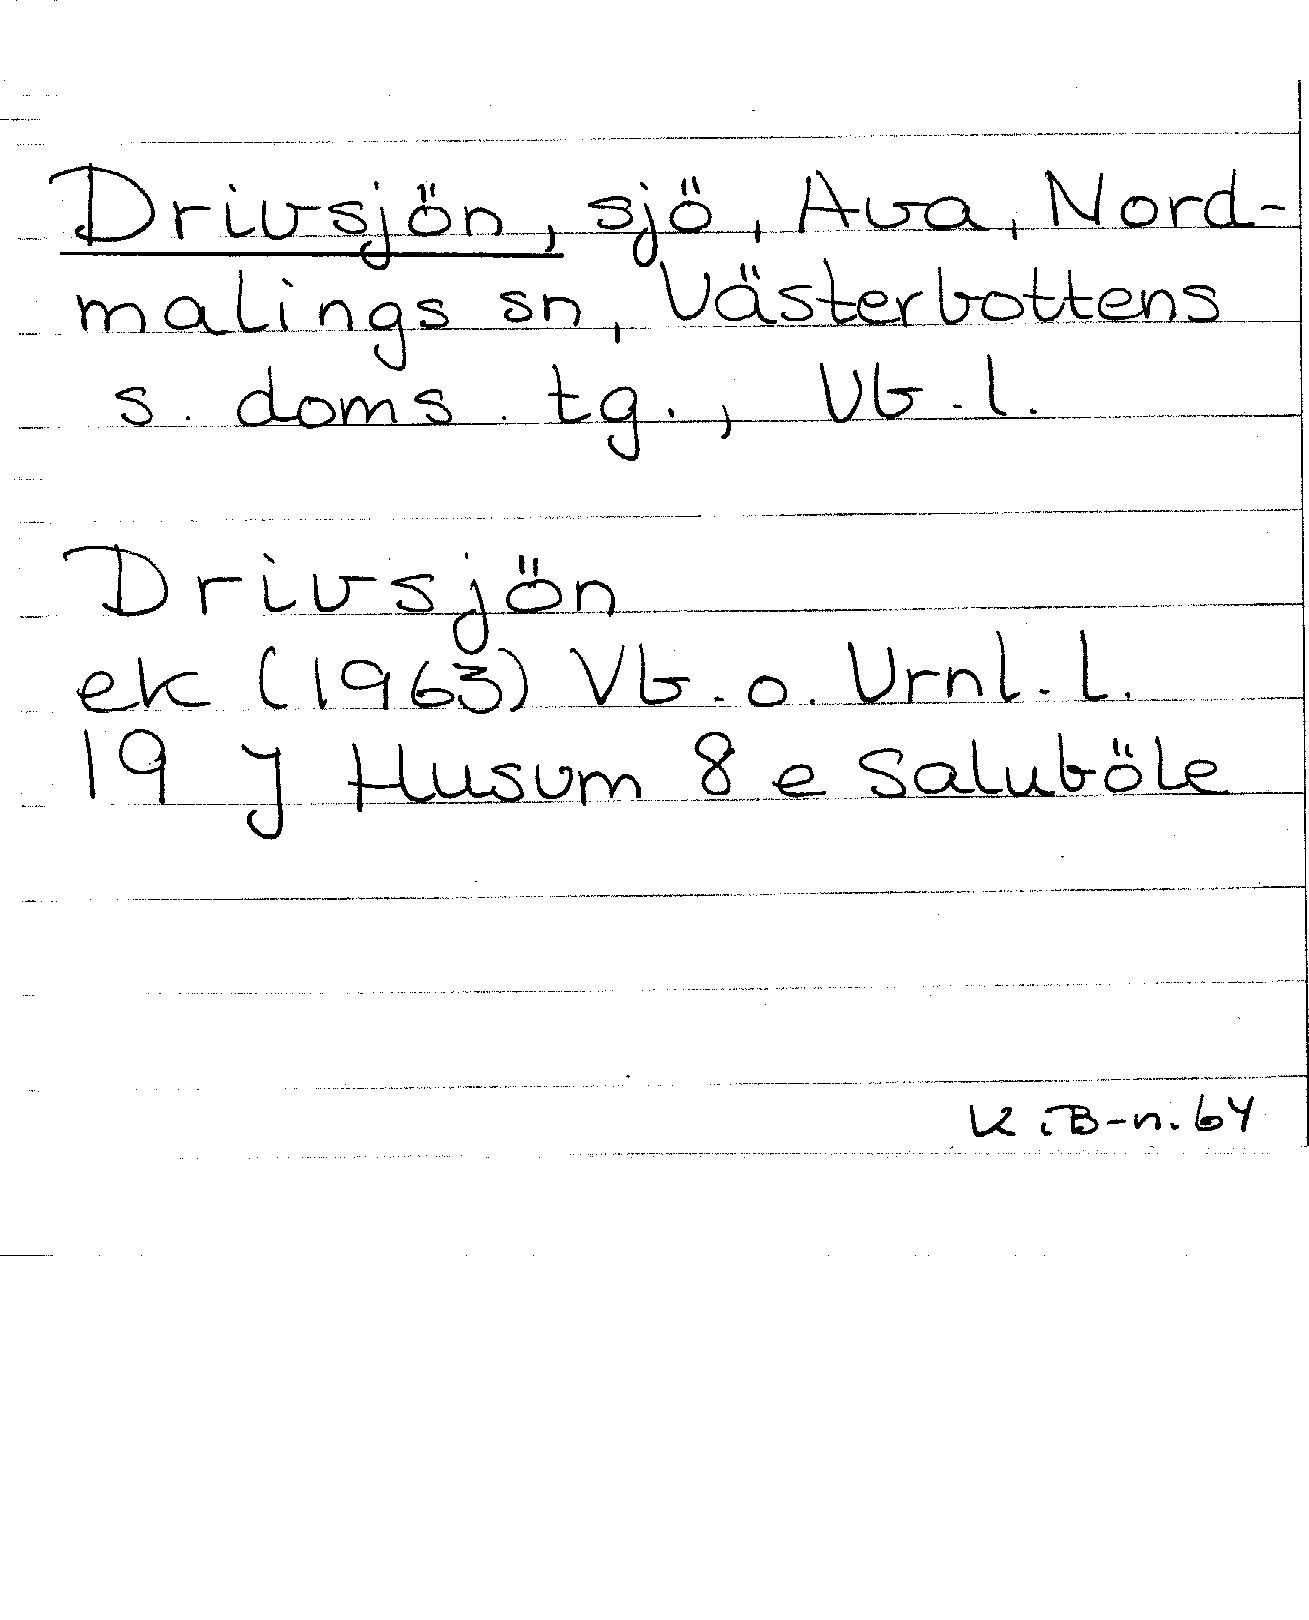 Drivsjön, sjö, Ava, Nord-
malings sn, Västerbottens
s. doms. tg., Vb.l.
Drivsjön
ek (1963) Vb. o. Vrnl. l.
19 J Husum 8 e Saluböle
K.B-n. 64